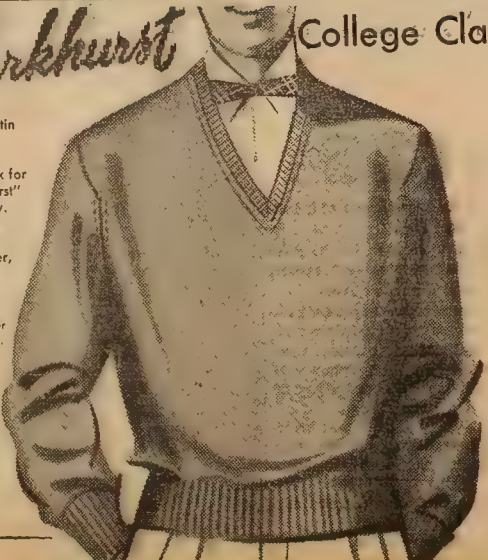 rkhurst
College Cla
tin
k for
rst"
y.
er,
or